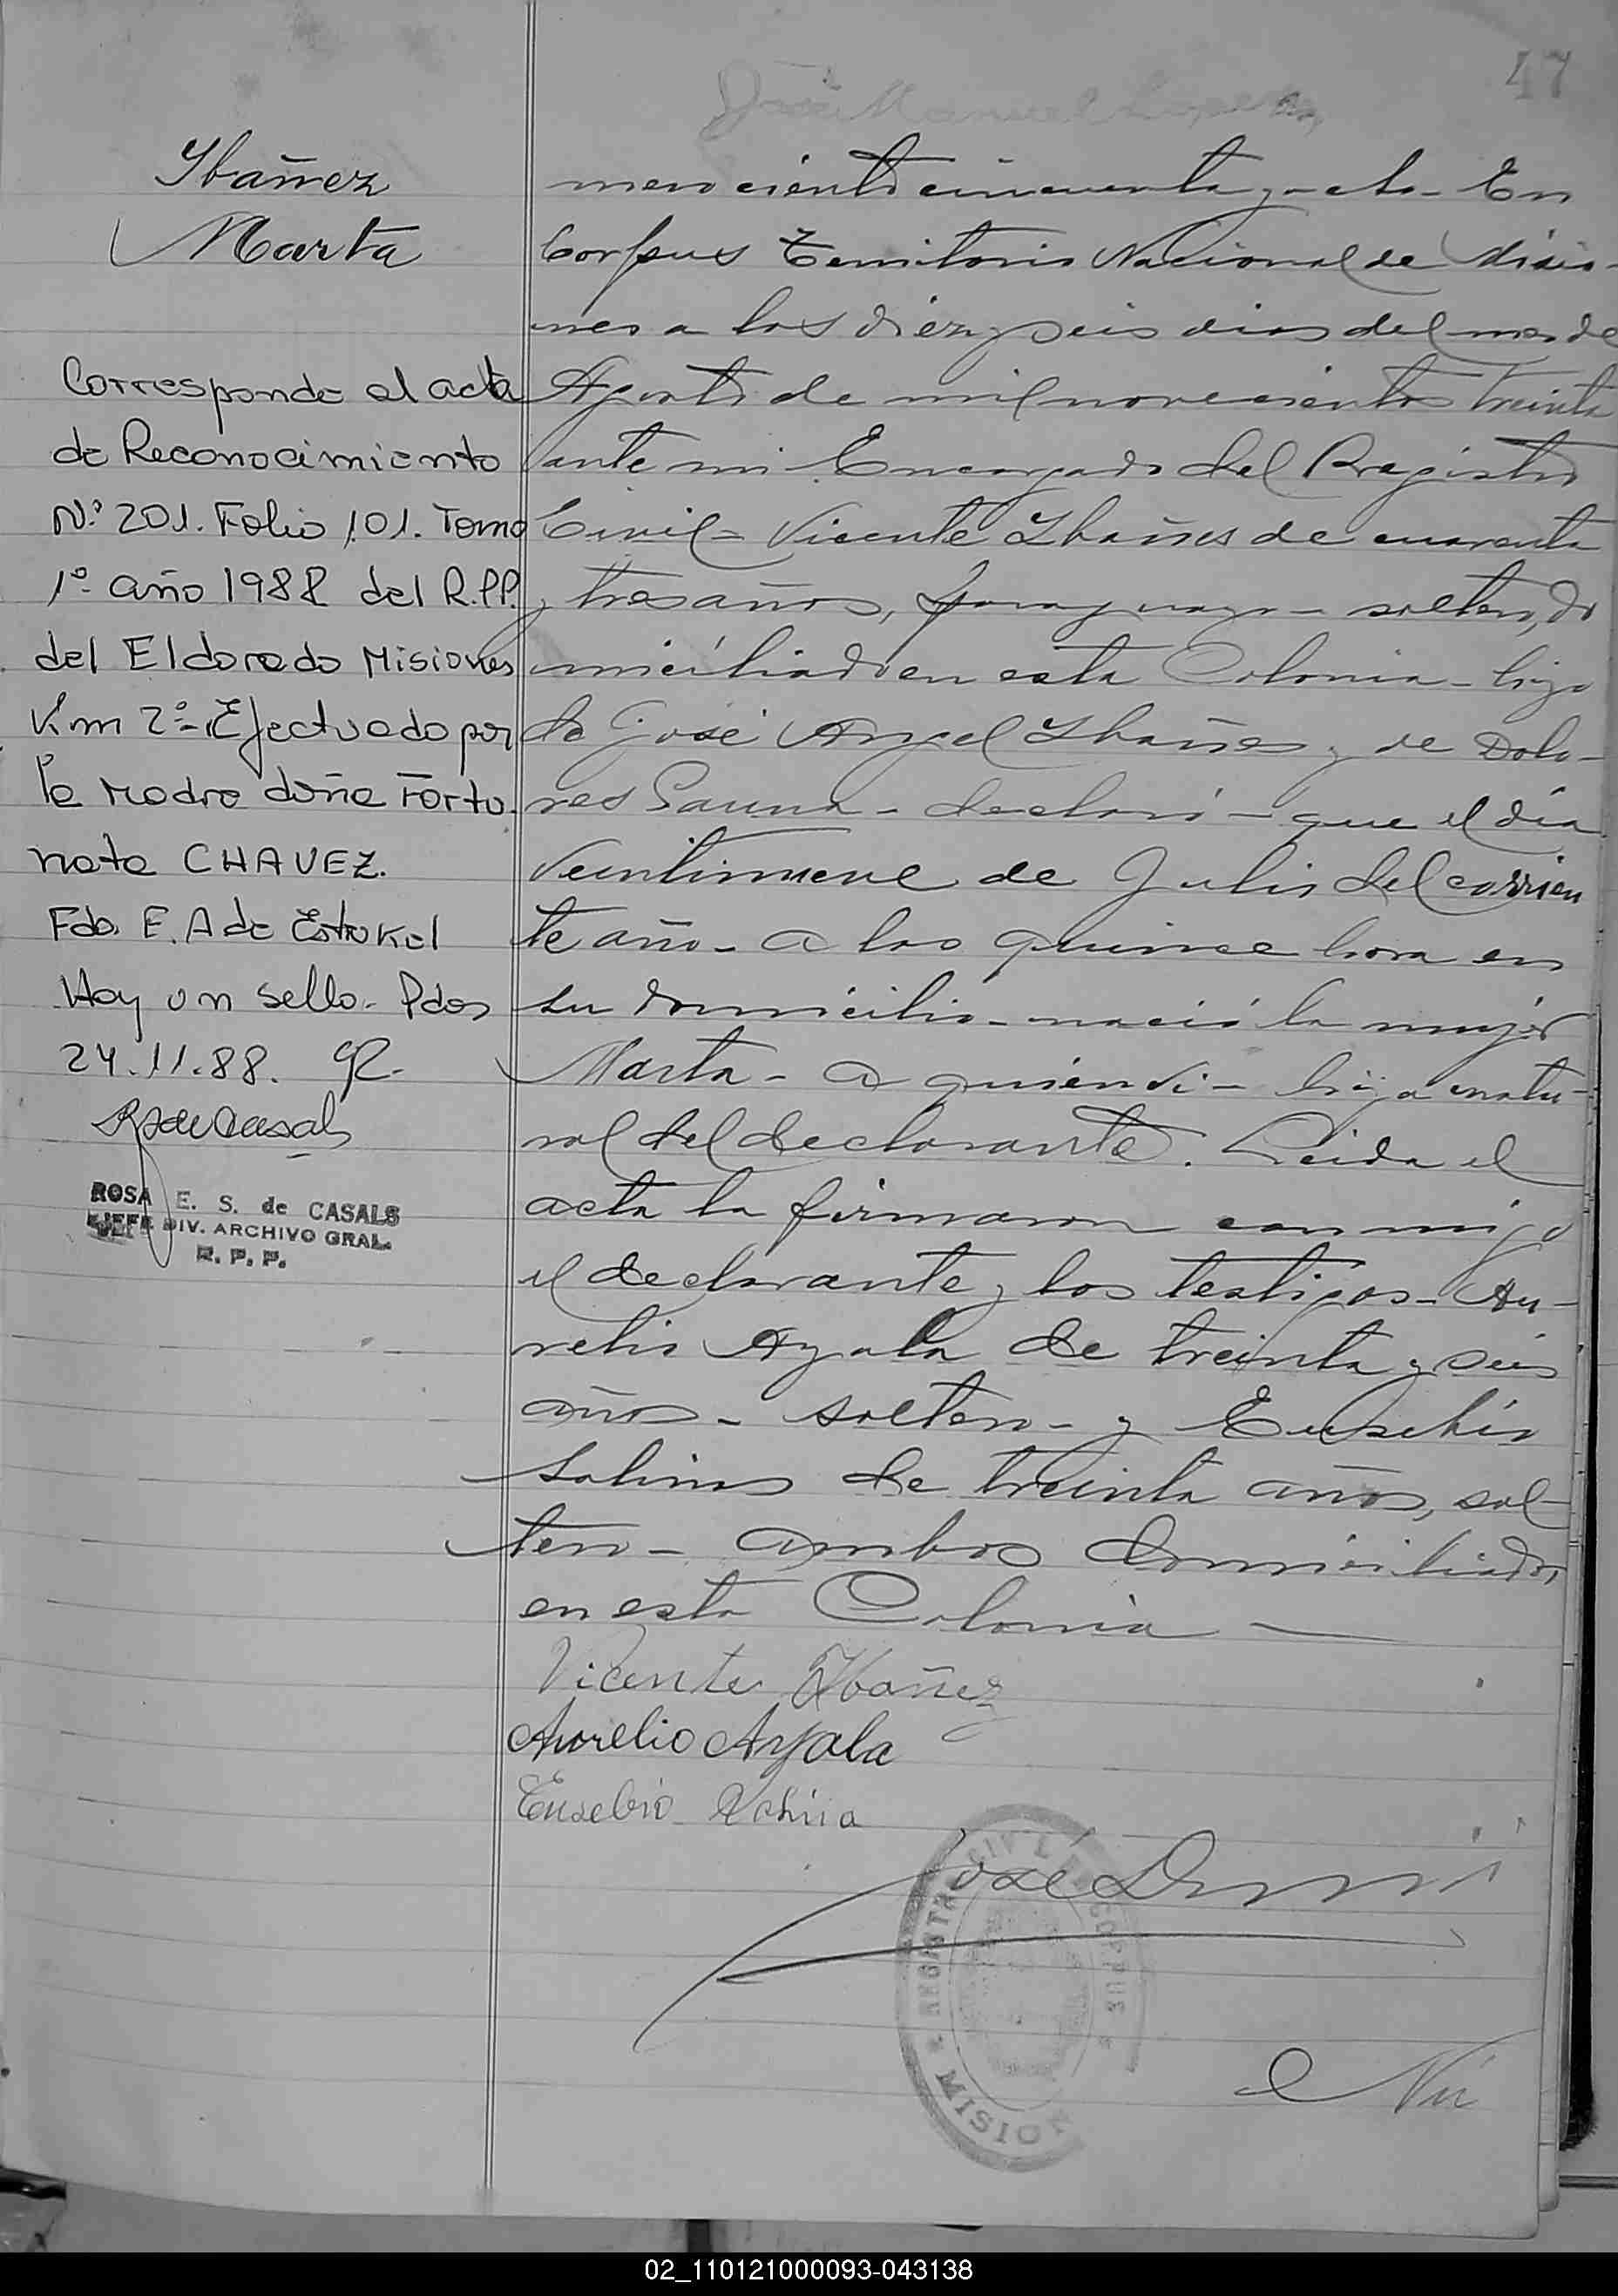 47
José Manuel
Ibáñez
Marta
Corresponde al acta
de Reconocimiento
Nº 201. Folio 101. Tomo
1º año 1988 del R.PP.
del Eldorado Misiones
Km 2º- Efectuado por
la Madre doña Fortu-
nata CHAVEZ.
Fdo. E. A de Estokel
Hay un sello. Pdas
24.11.88.
ROSA E. S. de CASALS
JEFE DIV. ARCHIVO GRAL.
R. P. P.
mero ciento cincuenta y ocho- En
Corpus Territorio Nacional de Misio-
nes a los diez y seis dias del mes de
Agosto de mil novecientos treinta
ante mi Encargado del Registro
Civil- Vicente Ibañes de cuarenta
y tres años, paraguayo- soltero, do
miciliado en esta Colonia- hijo
de José Angel Ibañes y de Dolo-
res - declaró- que el día
veintinueve de Julio del corrien
te año- a las quince hora en
su domicilio- nació la mujer
Marta- a quien vi- hija natu-
ral del declarante. Leida el
acta la firmaron conmigo
el declarante y los testigos- Au-
relio Ayala de treinta y seis
años- soltero- y Eusebio
Salinas de treinta años, sol-
tero- ambos domiciliados
en esta Colonia-
Vicente Ibañez
Aurelio Ayala
Eusebio
José
REGISTRO CIVIL CORPUS
MISIONES
Nú
02_110121000093-043138